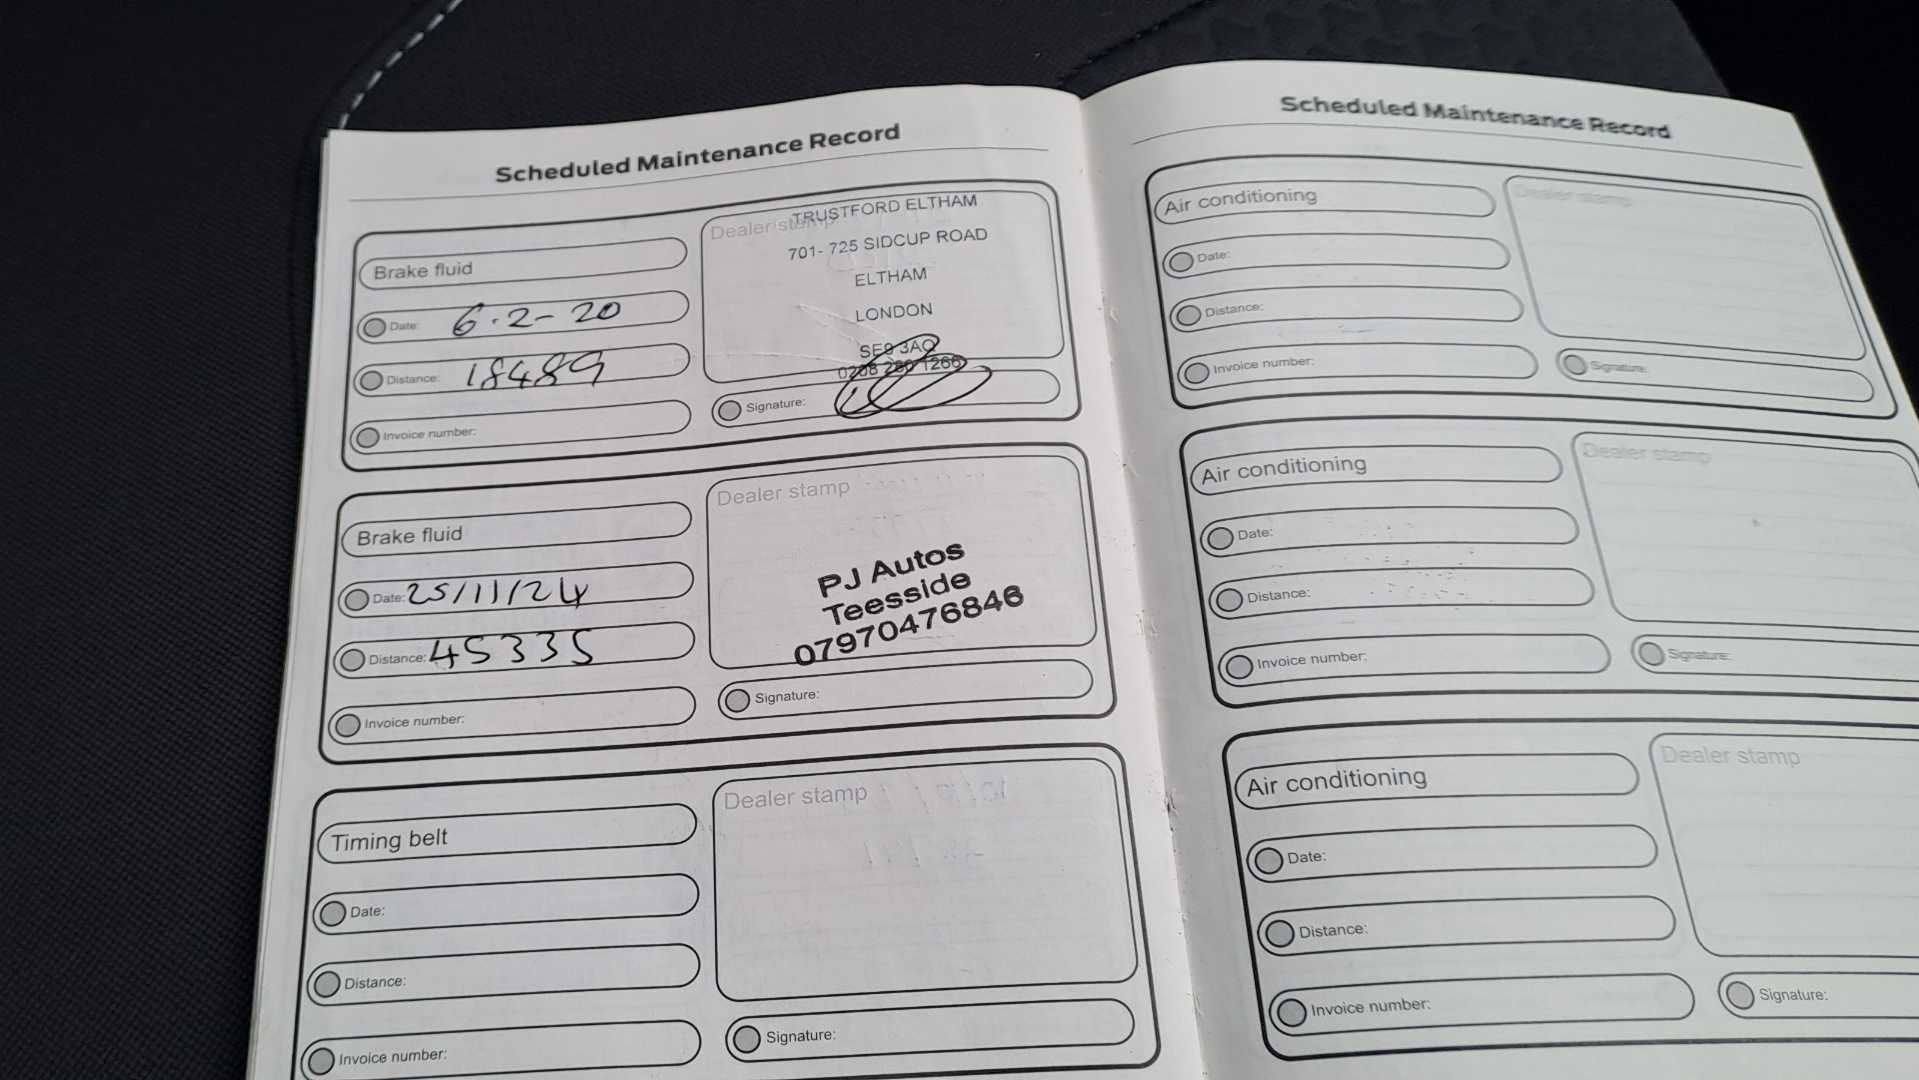 Scheduled Maintenance Record
Brake fluid
Date: 6-2-20
Distance: 18489
Invoice number:
Dealer stamp
TRUSTFORD ELTHAM
701-725 SIDCUP ROAD
ELTHAM
LONDON
SE9 3AQ
0208 280 1266
Signature:
Brake fluid
Date: 25/11/24
Distance: 45335
Invoice number:
Dealer stamp
PJ Autos
Teesside
07970476846
Signature:
Timing belt
Date:
Distance:
Invoice number:
Dealer stamp
Signature:
Scheduled Maintenance Record
Air conditioning
Date:
Distance:
Invoice number:
Dealer stamp
Signature:
Air conditioning
Date:
Distance:
Invoice number:
Dealer stamp
Signature:
Air conditioning
Date:
Distance:
Invoice number:
Dealer stamp
Signature: